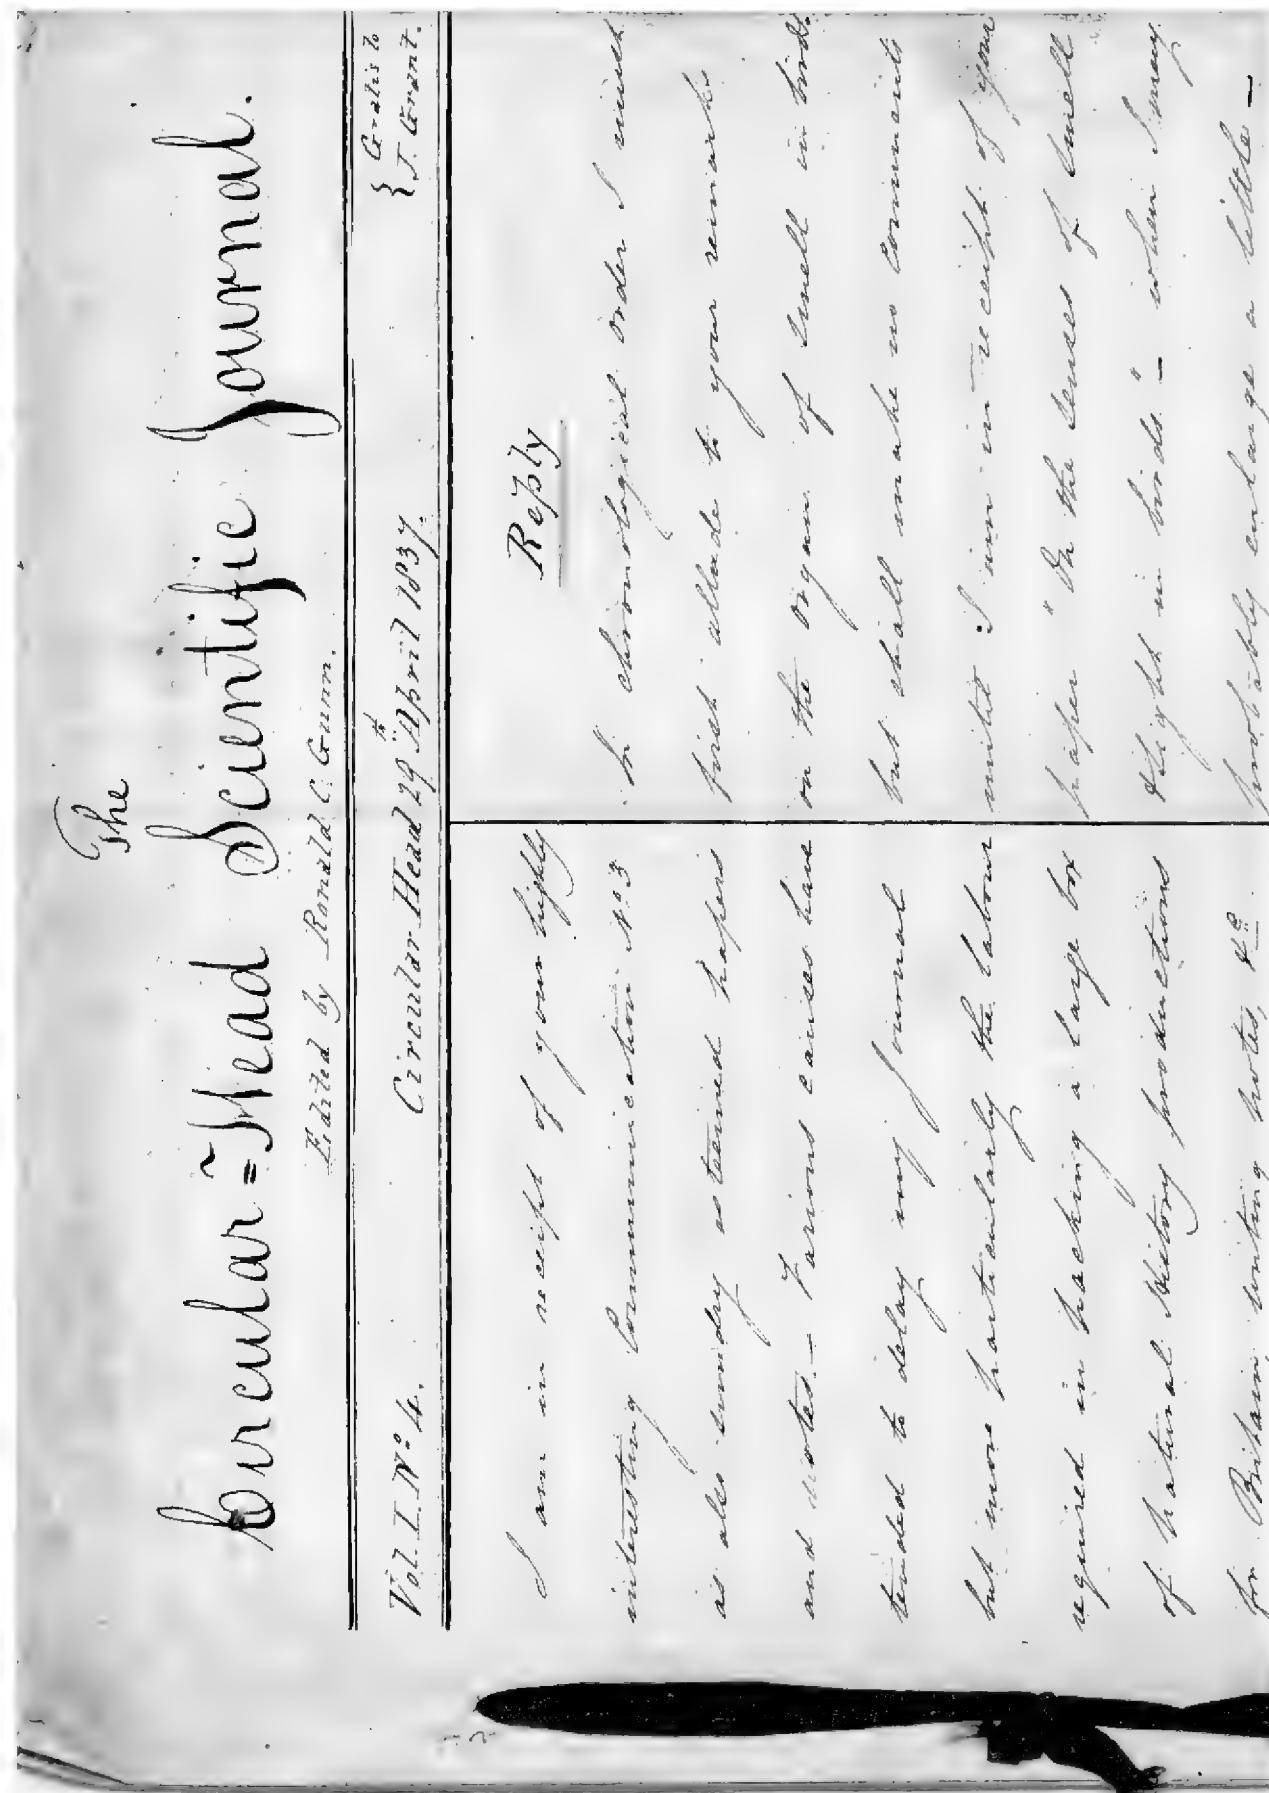 The
Circular=Head Scientific Journal.
Edited by Ronald C. Gunn.
Vol. I. No 4.
Circular Head 29th April 1837.
{ Gratis to
{ J. Grant.
I am in receipt of your highly
interesting Communication No 3
as also sundry esteemed papers
and notes. — Various causes have
tended to delay my Journal
but more particularly the labour
required in packing a large box
of Natural History productions
for Britain, writing notes, &c.
Reply
In chronological order I must
first allude to your remarks
on the organ of smell in birds
but shall make no comments
until I am in receipt of your
paper "On the senses of smell
& sight in birds" — when I may
probably enlarge a little —